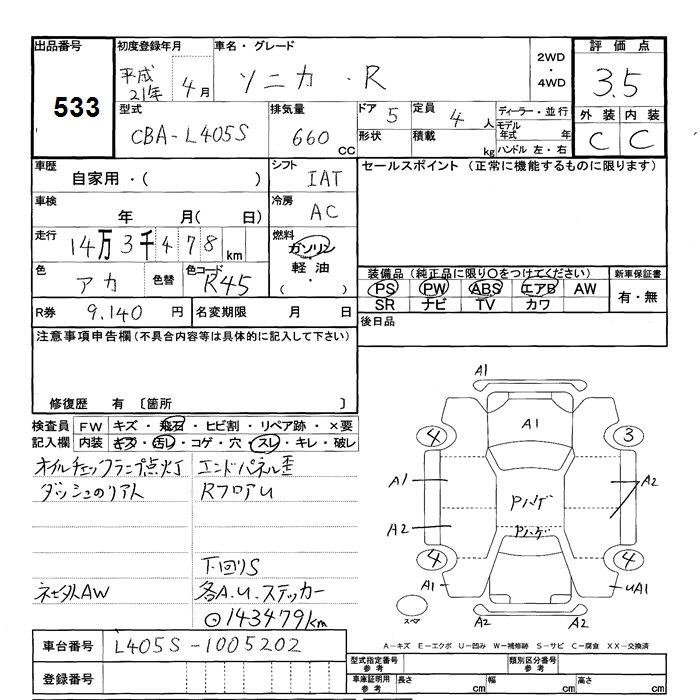 出品番号
533
初度登録年月
平成 21年 4月
車名・グレード
ソニカ・R
2WD・4WD
評価点
3.5
外装 内装
C C
型式
CBA-L405S
排気量
660 CC
ドア 5
形状
定員 4 人
積載 kg
ディーラー・並行
モデル年式 年
ハンドル 左・右
車歴
自家用・( )
シフト
IAT
セールスポイント (正常に機能するものに限ります)
車検
年 月( 日)
冷房
AC
走行
14万3千478km
燃料
ガソリン
軽油
( ・ )
色
アカ
色替
色コード
R45
装備品(純正品に限り○をつけてください)
PS PW ABS エアB AW
SR ナビ TV カワ
新車保証書
有・無
R券 9.140 円
名変期限 月 日
後日品
注意事項申告欄(不具合内容等は具体的に記入して下さい)
修復歴 有 〔箇所 〕
検査員記入欄
FW キズ・飛石・ヒビ割・リペア跡・×要
内装 キズ・汚レ・コゲ・穴・スレ・キレ・破レ
オイルチェックランプ点灯
ダッシュのリアト
ネセ外AW
エンドパネル歪
RフロアU
下回りS
各A.U.ステッカー
⊙143479km
車台番号
L405S-1005202
登録番号
A1
A1
4 3
A1 A2
Pハゲ
A2
Pハゲ
4 4
A1 UA1
スペア
A2 A2
A-キズ E-エクボ U-凹み W-補修跡 S-サビ C-腐食 XX-交換済
型式指定番号 参考
類別区分番号 参考
車庫証明用 参考
長さ cm
幅 cm
高さ cm